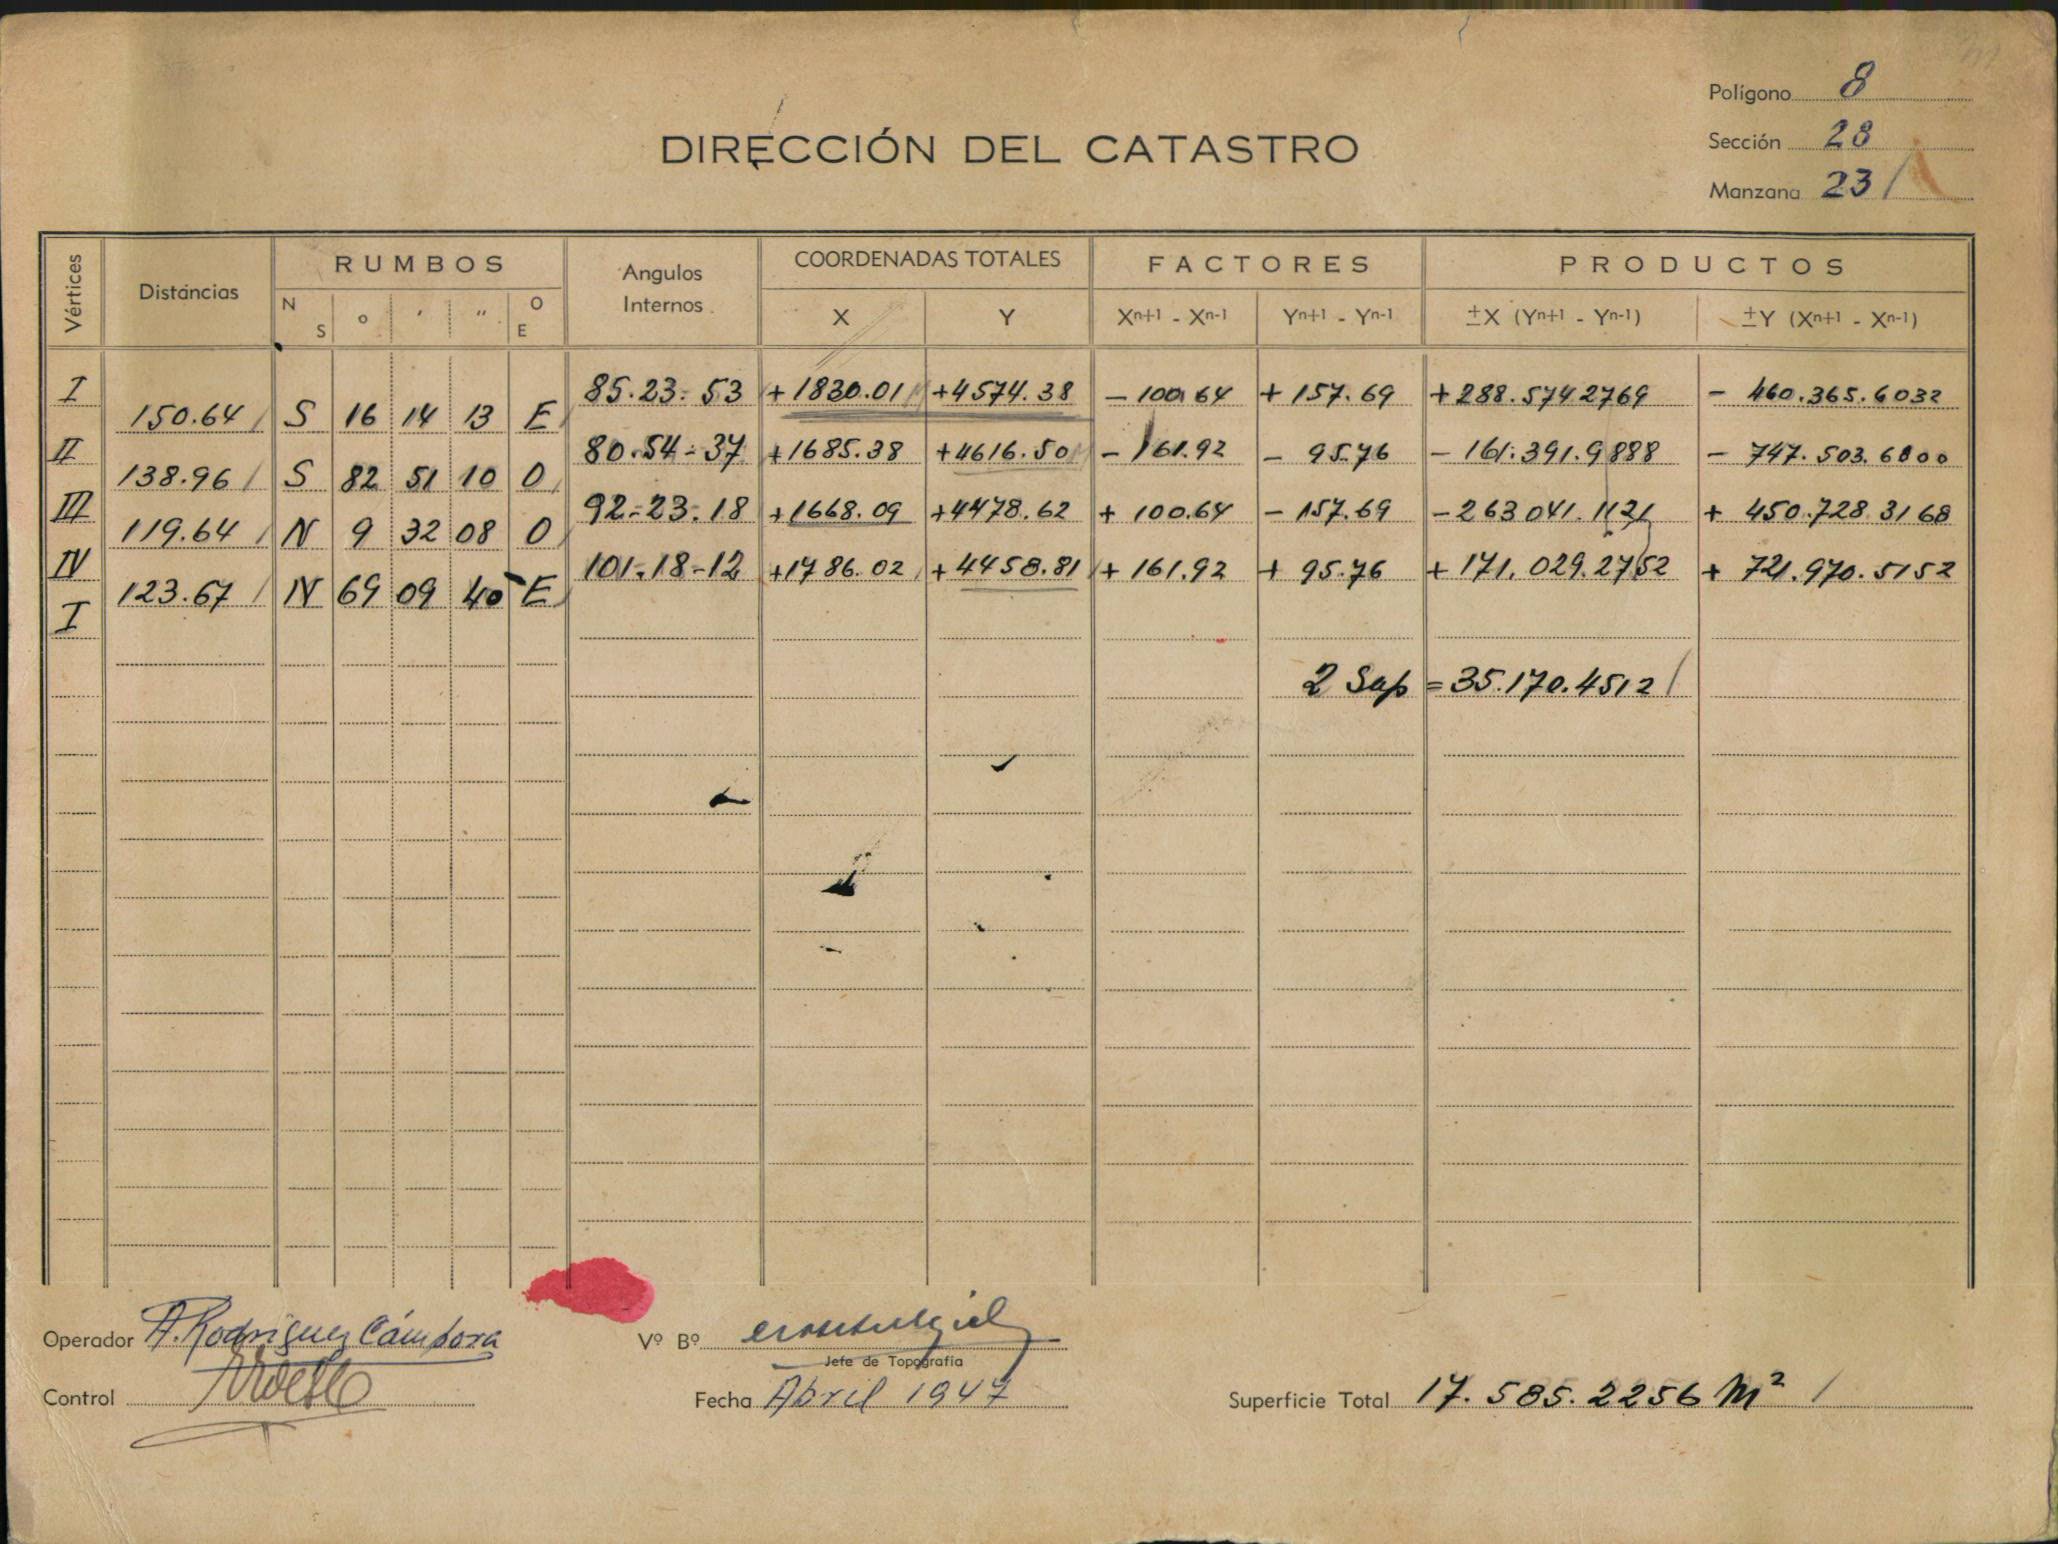 Polígono 8
DIRECCIÓN DEL CATASTRO
Sección 28
Manzana 23 /
Vértices Distáncias RUMBOS Angulos Internos COORDENADAS TOTALES FACTORES PRODUCTOS
N S o ′ ″ O E X Y Xn+1 - Xn-1 Yn+1 - Yn-1 ±X (Yn+1 - Yn-1) ±Y (Xn+1 - Xn-1)
I 85.23.53 +1830.01 +4574.38 -100.64 +157.69 +288.574.2769 - 460.365.6032
150.64 / S 16 14 13 E
II 80.54-37 +1685.38 +4616.50 -161.92 - 95.76 -161.391.9888 - 747.503.6800
138.96 / S 82 51 10 O
III 92-23.18 +1668.09 +4478.62 +100.64 -157.69 -263041.1121 + 450.728.3168
119.64 / N 9 32 08 O
IV 101-18-12 +1786.02 +4458.81 +161.92 + 95.76 +171.029.2752 + 721.970.5152
123.67 / N 69 09 40 E
I
2 Sup = 35.170.4512 /
Operador A. Rodriguez Cámbora Vº Bº
Jefe de Topografía
Control Fecha Abril 1947 Superficie Total 17.585.2256 M² /